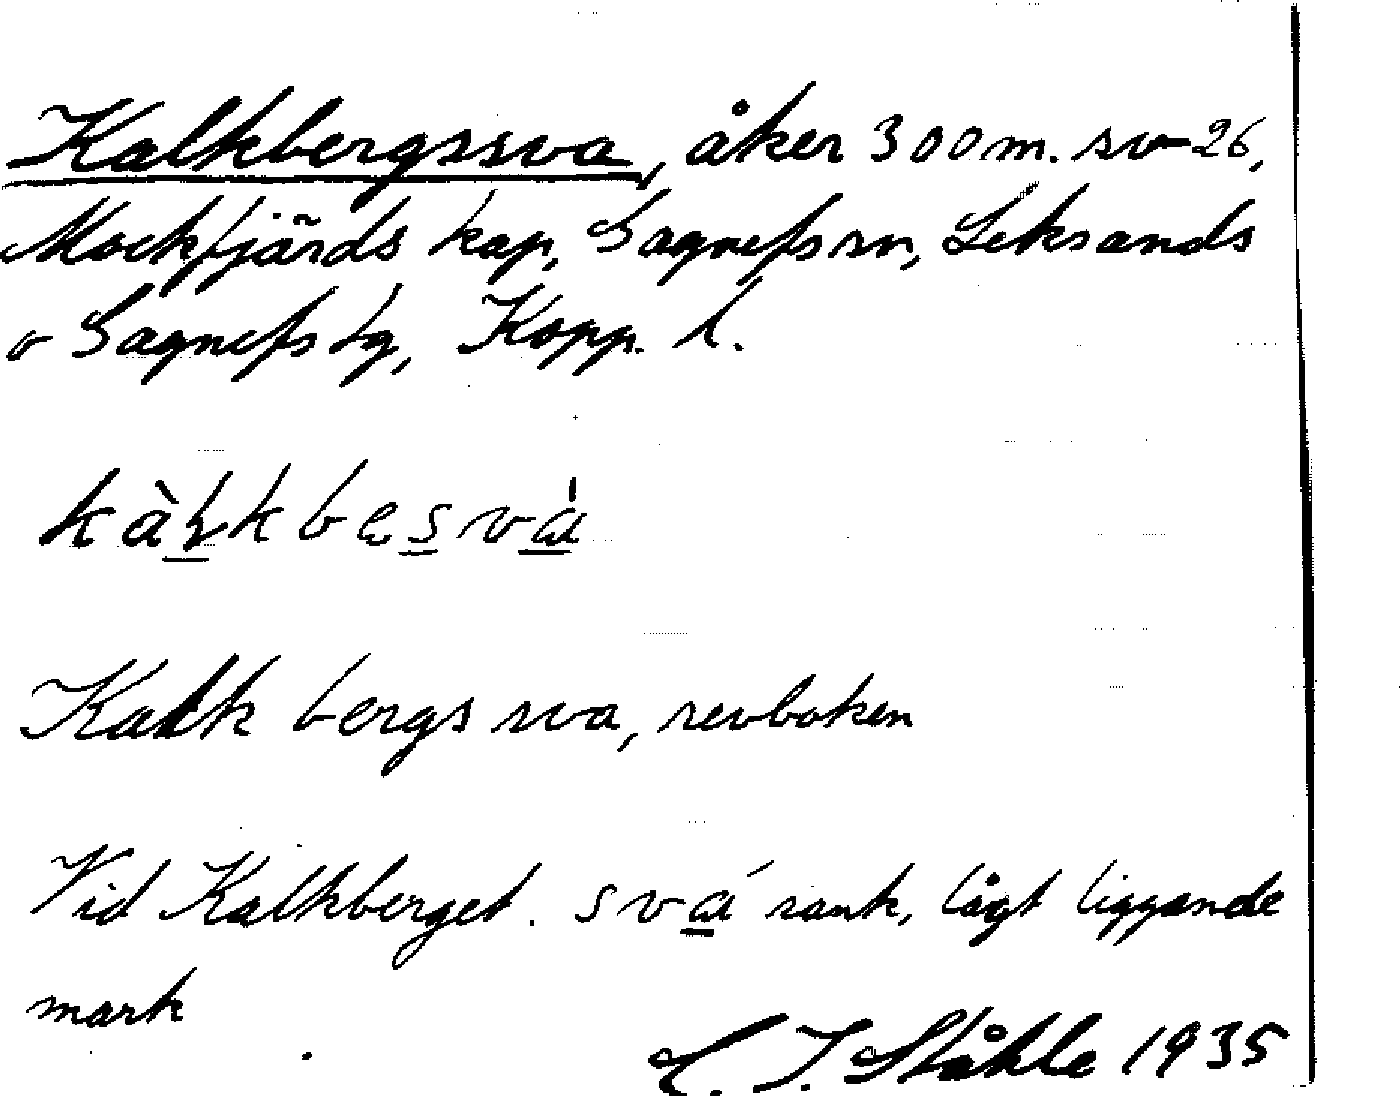 Kalkbergssva, åker 300 m. sv 26,
Mockfjärds kap, Gagnefs sn, Leksands
o Gagnefs tg, Kopp. l.
kàlkbesvá
Kalk bergs sva, revboken
Vid Kalkberget. svá sank, lågt liggande
mark
C. I. Ståhle 1935